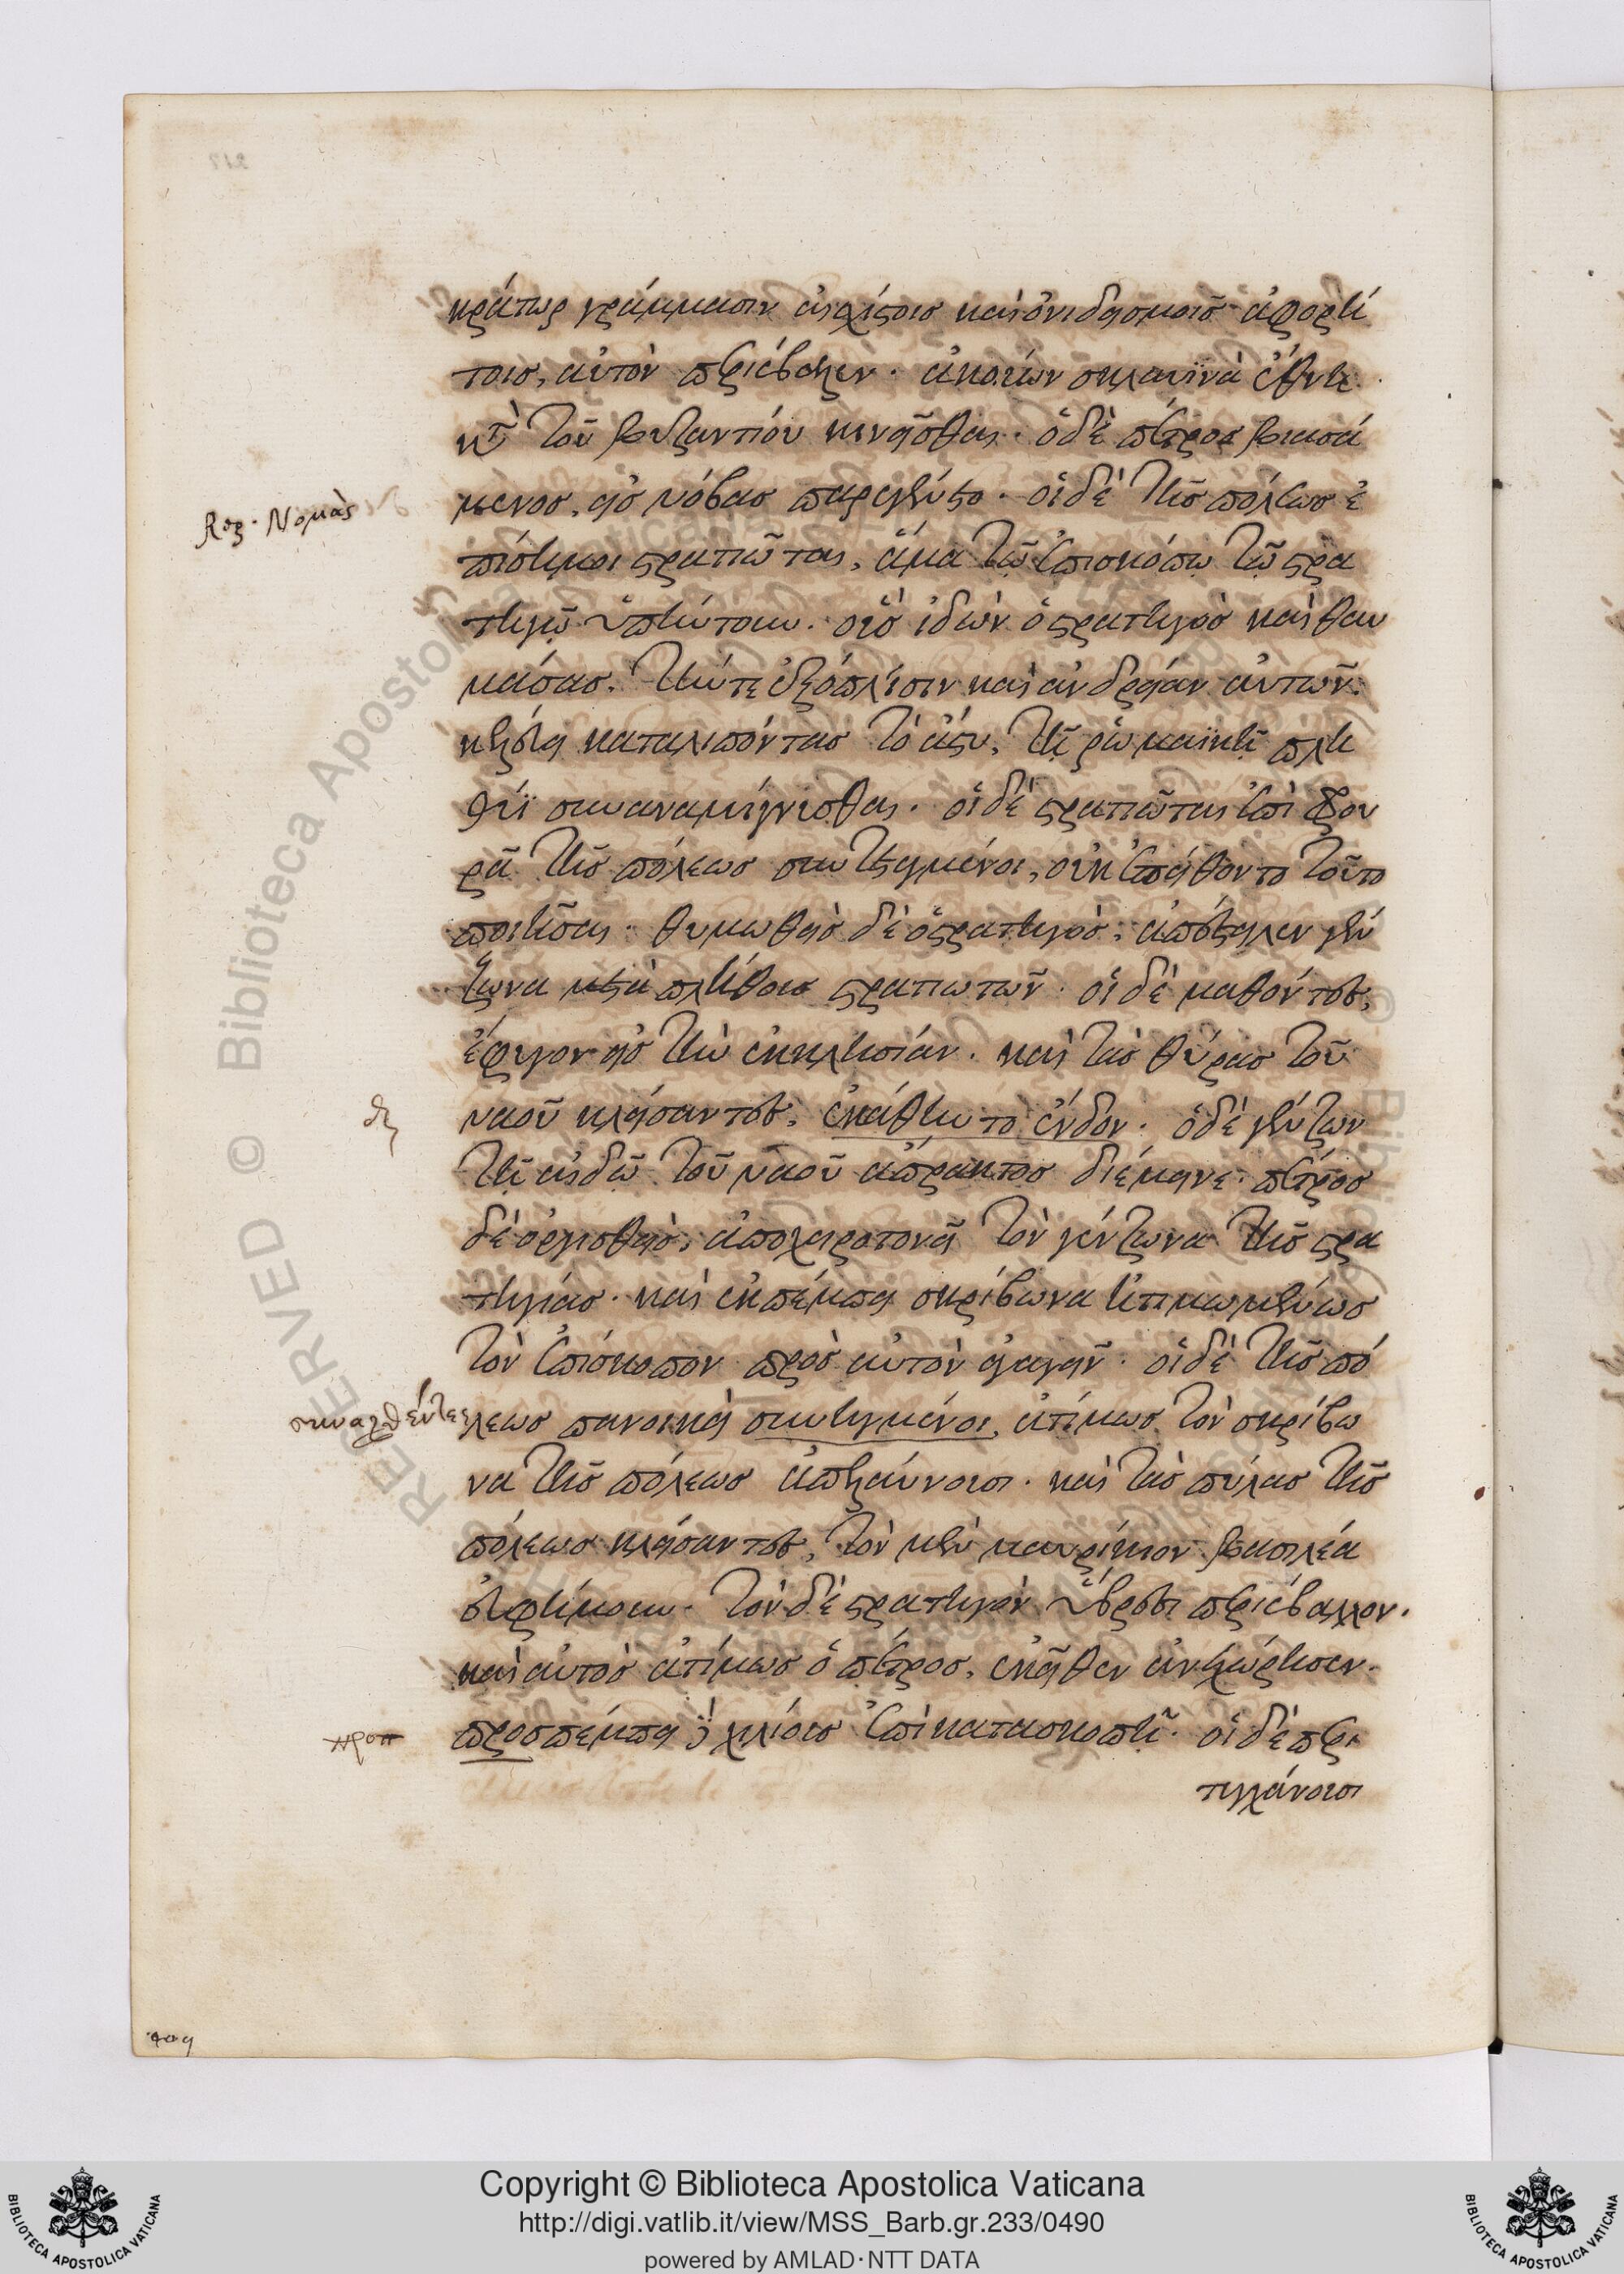 κράτωρ γράμμασιν αἰσχίστοις καὶ ὀνιδεισμοῖς ἀφορή
τοις, αὐτὸν περιέβαλεν. ἀκούων σκλαυϊνὰ ἔθνη
κατὰ τοῦ βυζαντίου κινεῖσθαι. ὁ δὲ πέτρος βιασά
Reg. Νομὰς
μενος, εἰς νόβας παρεγένετο. οἱ δὲ τῆς πόλεως ἐ
πίσημοι στρατιῶται, ἅμα τῷ ἐπισκόπῳ τῷ στρα
τηγῷ ὑπήντουν. οὓς ἰδὼν ὁ στρατηγὸς καὶ θαυ
μάσας, τήντε ἐξόπλισιν καὶ ανδρείαν αὐτῶν.
κελεύει καταλιπόντας τὸ άστυ, τῇ ρωμαϊκῇ πλη
θύϊ συναναμίγνισθαι. οἱ δὲ στρατιῶται ἐπὶ φρου
ρᾷ τῆς πόλεως συντεταγμένοι, οὐκ ἐπείθοντο τοῦτο
ποιῆσαι. θυμωθεὶς δὲ ὁ στρατηγὸς, ἀπέστειλεν γέν
ζωνα μετὰ πλήθους στρατιωτῶν. οἱ δὲ μαθόντες,
ἔφυγον εἰς τὴν ἐκκλησίαν. καὶ τὰς θύρας τοῦ
ναοῦ κλείσαντες, ἐκάθηντο ἔνδον. ὁ δὲ γένζων
τῇ αιδῷ τοῦ ναοῦ ἄπρακτος διέμεινε. πέτρος
δὲ οργισθεὶς, ἀποχειροτονεῖ τὸν γένζωνα τῆς στρα
τηγίας. καὶ ἐκπέμπει σκρίβωνα ητιμωμένως
τὸν ἐπίσκοπον πρὸς αὐτὸν ἀγαγεῖν. οἱ δὲ τῆς πό
συναχθέντες
λεως πανοικεὶ συνηγμένοι, ἀτίμως τὸν σκρίβω
να τῆς πόλεως ἀπελαύνουσι. καὶ τὰς πύλας τῆς
πόλεως κλείσαντες, τὸν μὲν μαυρίκιον βασιλέα
ἐυφήμουν. τὸν δὲ στρατηγὸν ὕβρεσι περιέβαλλον.
καὶ αὐτὸς ἀτίμως ὁ πέτρος, ἐκεῖθεν ἀνεχώρησεν.
προπ
προσπέμπει χιλίους ἐπὶ κατασκοπῇ. οἱ δὲ περι
τυγχάνουσι
409
Copyright © Biblioteca Apostolica Vaticana
http://digi.vatlib.it/view/MSS_Barb.gr.233/0490
powered by AMLAD·NTT DATA
BIBLIOTECA APOSTOLICA VATICANA
BIBLIOTECA APOSTOLICA VATICANA